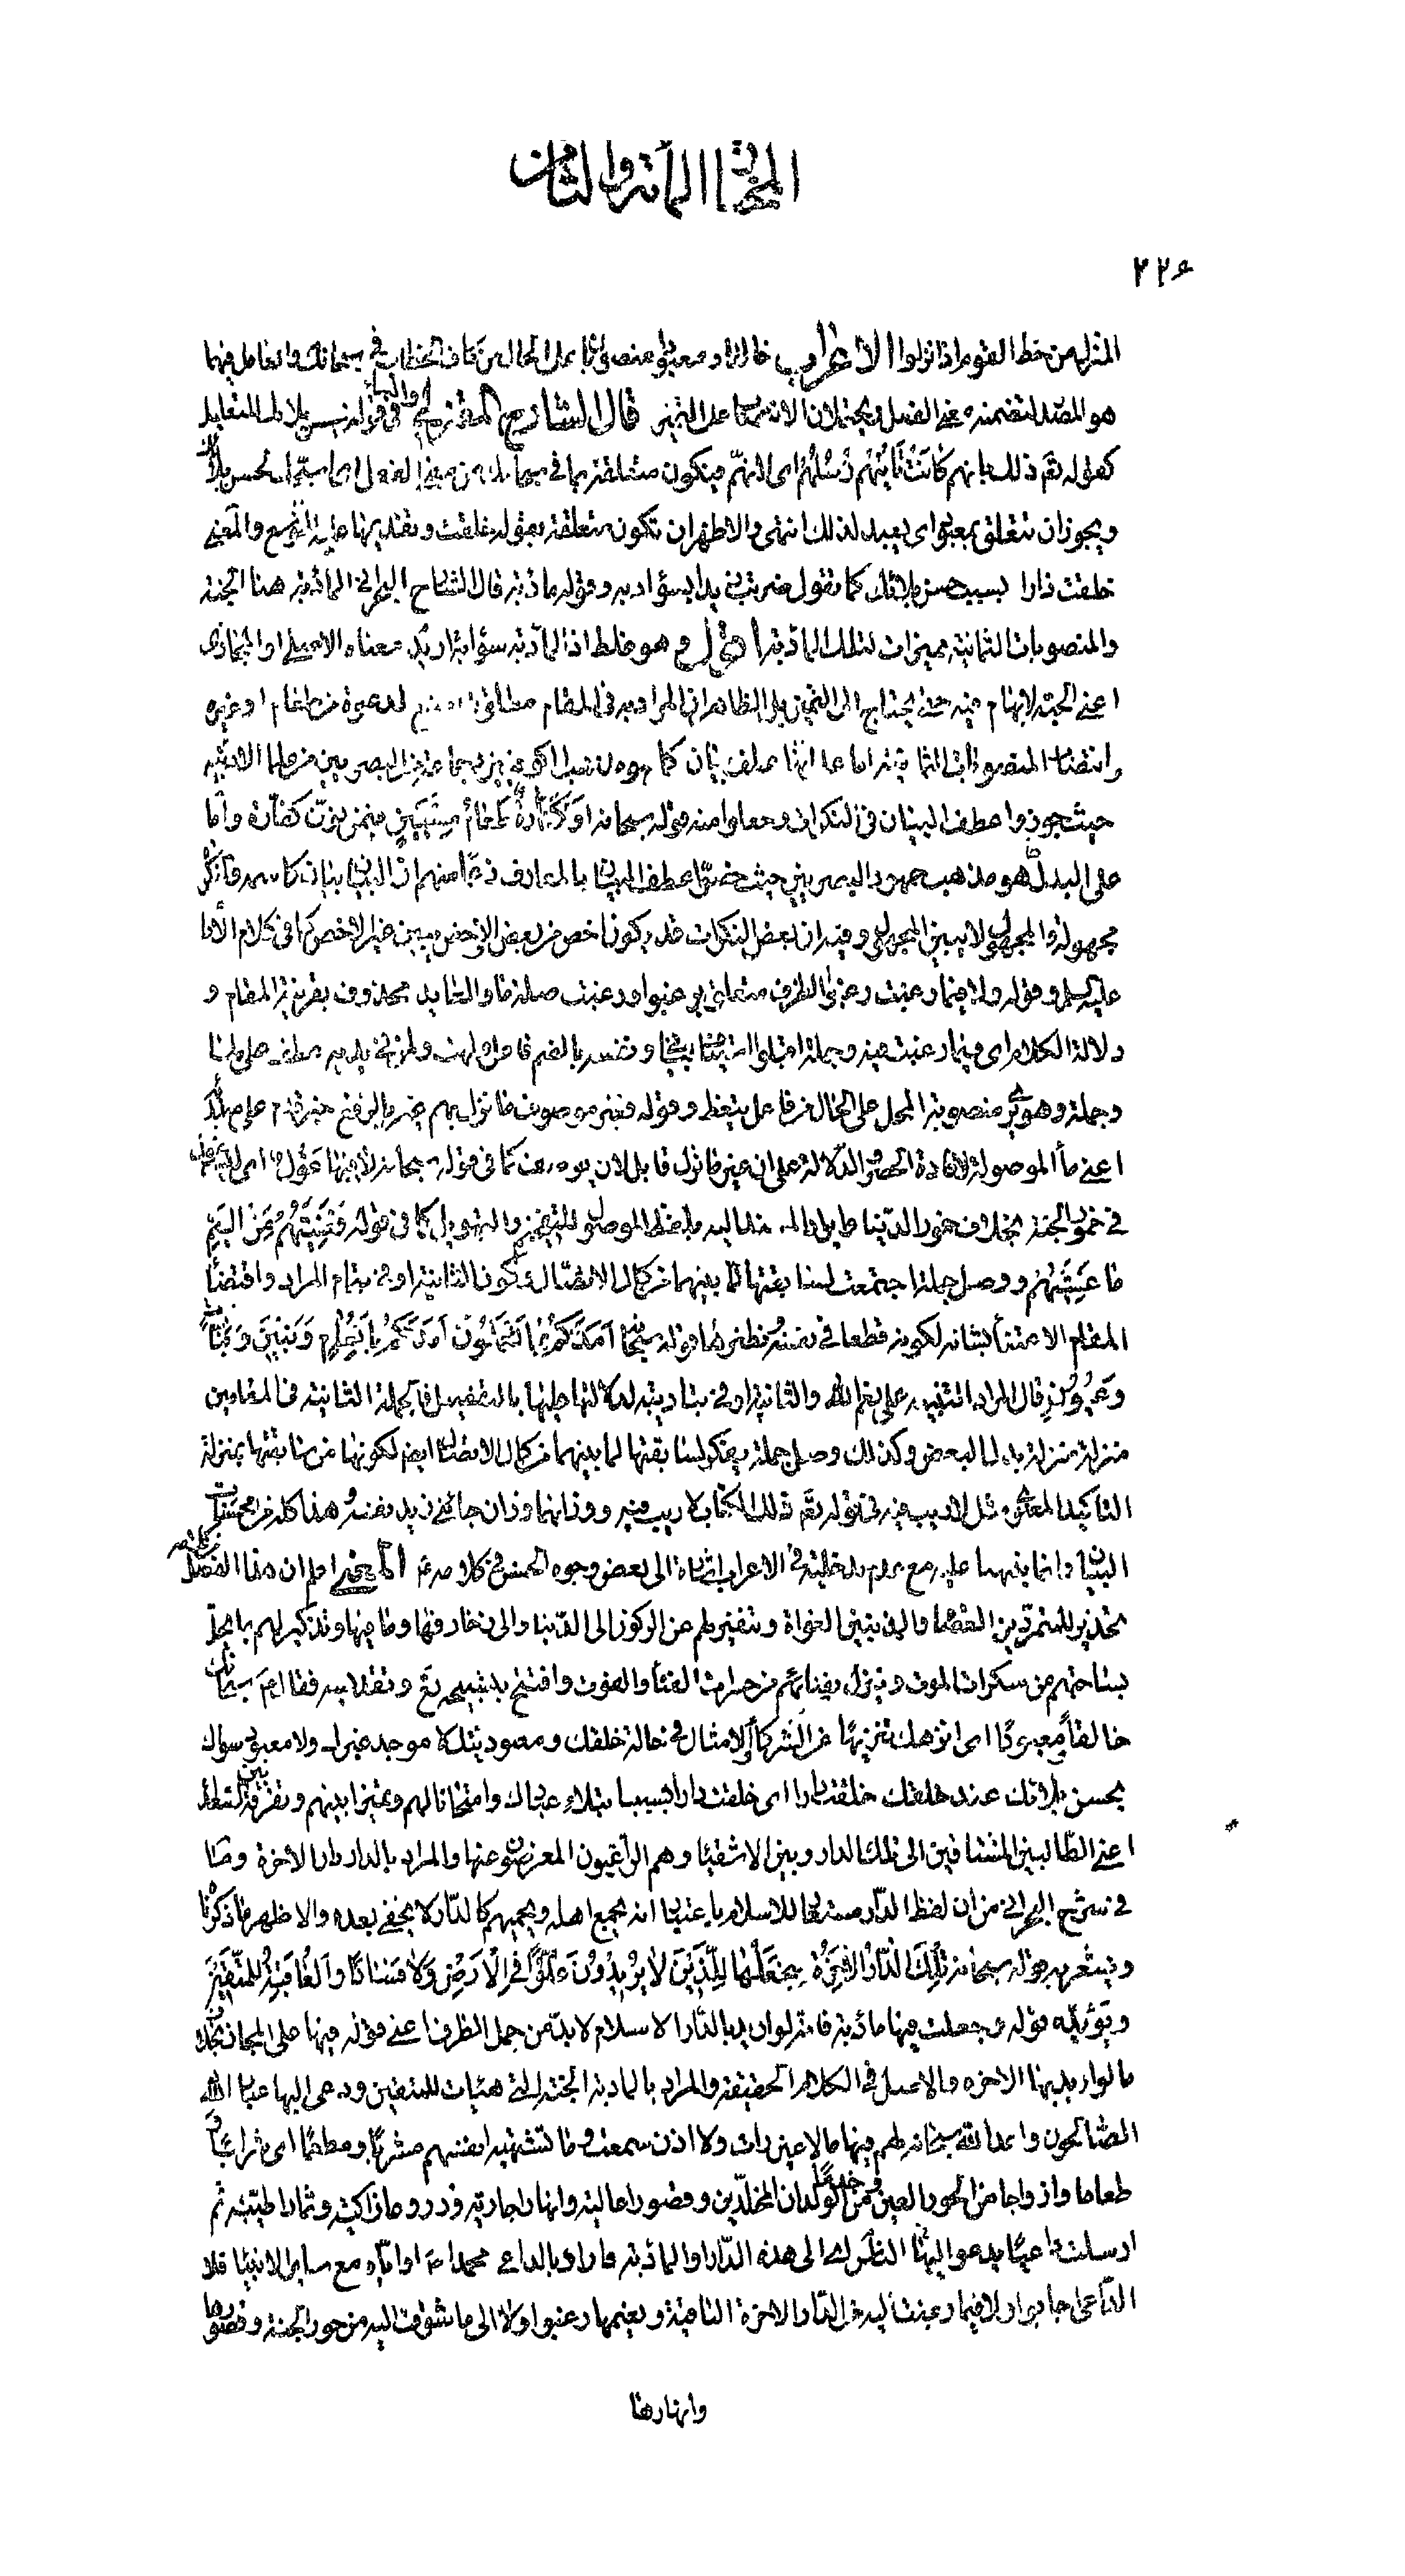 المختار المأة والثامن
٢٢۶
المنزل من حط القوم اذا نزلوا الاعراب خالقا ومعبودا منصوبان على الحال من كاف الخطاب في سبحانك والعامل فيهما
هو المصدر لتضمنه معنى الفعل ويحتمل الانتصاب على التميز قال الشارح المعتزلي والباء في قوله بحسن بلائك للتعليل
كقوله تعالى ذلك بانهم كانت تأتيهم رسلهم اى لانهم فيكون متعلقة بما في سبحانك من معنى الفعل اى اسبحك لحسن بلائك
ويجوز ان تتعلق بمعبود اى يعبد لذلك انتهى والاظهر ان تكون متعلقة بقوله خلقت وتقديمها عليه للتوسع والمعنى
خلقت دارا بسبب حسن بلائك كما تقول ضربت زيدا بسؤ ادبه وقوله مأدبة قال الشارح البحراني المأدبة هنا الجنة
والمنصوبات الثمانية مميزات لتلك المأدبة اقول وهو غلط اذ المأدبة سواء اريد معناه الاصلي او المجازى
اعنى الجنة لا ابهام فيه حتى يحتاج الى التميز بل الظاهر ان المراد به في المقام مطلق ما يصنع لدعوة من طعام او غيره
وانتصاب المنصوبات الثمانية اما على انها عطف بيان كما هو مذهب الكوفيين وجماعة من البصريين
حيث جوزوا عطف البيان في النكرات وجعلوا منه قوله سبحانه او كفارة طعام مسكين فيمن نون كفارة واما
على البدل كما هو مذهب جمهور البصريين حيث خصوا عطف البيان بالمعارف زعما منهم ان البيان بيان كاسمه والنكرة
مجهولة والمجهول لا يبين المجهول وفيه ان بعض النكرات قد يكون اخص من بعض الاخص يبين غير الاخص كما في كلام الامام
عليه السلم وقوله ولا فيما رغبت رغبوا الظرف متعلق برغبوا ورغبت صلة ما والعائد محذوف بقرينة المقام و
دلالة الكلام اى فيما رغبت فيه وجملة اقبلوا استيناف بيانى ونفسه بالضم فاعل ولهت
وجملة وهو منصوبة المحل على الحال من فاعل يتعظ وقوله فغير موصوف ما نزل بهم غير بالرفع خبر قدم على مبتدئه
اعنى ما الموصولة لافادة الحصر والدلالة على ان غير ما نزل قابل لان يوصف كما في قوله سبحانه لا فيها غول اى ليس غول
في خمور الجنة بخلاف خمور الدنيا وايراد المسند اليه بلفظ الموصول للتفخيم والتهويل كما في قوله فغشيهم من اليم
ما غشيهم ووصل جملة اجتمعت لسابقتها لما بينهما من كمال الاتصال لكون الثانية اوفى بتمام المراد واقتضاء
المقام الاعتناء بشانه لكونه فظيعا في نفسه ونظيرها قوله سبحانه امدكم بما تعلمون امدكم بانعام وبنين وجنات
وعيون فان المراد التنبيه على نعم الله والثانية اوفى بتاديته لدلالتها عليها بالتفصيل فالجملة الثانية في المقامين
منزلة منزلة بدل البعض وكذلك وصل جملة يفكر لسابقتها لما بينهما من كمال الاتصال ايضا لكونها من سابقتها بمنزلة
التاكيد المعنوى مثل لا ريب فيه في قوله تعالى ذلك الكتاب لا ريب فيه ووزانهما وزان جائنى زيد نفسه وهذا كله من محسنات
البيان وانما نبهنا عليه مع عدم مدخليته في الاعراب اشارة الى بعض وجوه الحسن في كلامه ع المعنى اعلم ان هذا الفصل من كلامه
تحذير للمتمردين العصاة والمذنبين الغواة وتنفير لهم عن الركون الى الدنيا والى زخارفها وما فيها وتذكير لهم بما يحل
بساحتهم من سكرات الموت وينزل بفنائهم من حسرات الفناء والفوت وافتتح بتسبيحه تعالى وتقديسه فقال ع سبحانك
خالقا ومعبودا اى انزهك تنزيها عن الشركاء والامثال في حالة خلقك ومعبوديتك لا موجد غيرك ولا معبود سواك
بحسن بلائك عند خلقك خلقت دارا اى خلقت دارا بسبب ابتلاء عبادك وامتحانا لهم وتميزا بينهم وتفرقة بين السعداء
اعنى الطالبين المشتاقين الى تلك الدار وبين الاشقياء وهم الراغبون المعرضون عنها والمراد بالدار دار الاخرة وما
في شرح البحراني من ان لفظ الدار مستعار للاسلام باعتبار انه يجمع اهله ويحميهم كالدار لا يخفى بعده والاظهر ما ذكرنا
ويشعر به قوله سبحانه تلك الدار الاخرة نجعلها للذين لا يريدون علوا في الارض ولا فسادا والعاقبة للمتقين
ويؤيده قوله وجعلت فيها مأدبة فانه لو اريد بالدار الاسلام لا بد من حمل الظرف اعنى قوله فيها على المجاز بخلاف
ما لو اريد بها الاخرة والاصل في الكلام الحقيقة والمراد بالمادبة الجنة التي هيأت للمتقين ودعى اليها عباد الله
الصالحون واعد الله سبحانه لهم فيها ما لا عين رات ولا اذن سمعت وما تشتهيه انفسهم مشربا ومطعما اى شرابا و
طعاما وازواجا من الحور العين وخدما من الولدان المخلدين وقصورا عالية وانهارا جارية وزروعا زاكية وثمارا طيبة ثم
ارسلت داعيا يدعو اليها الناس اى الى هذه الدار والمادبة والمراد بالداعى محمد ص او اياه مع ساير الانبياء فلا
الداعى اجابوا ولا فيما رغبت اليه من الدار الاخرة الباقية ونعيمها رغبوا ولا الى ما شوقت اليه من حور الجنة وقصورها
وانهارها